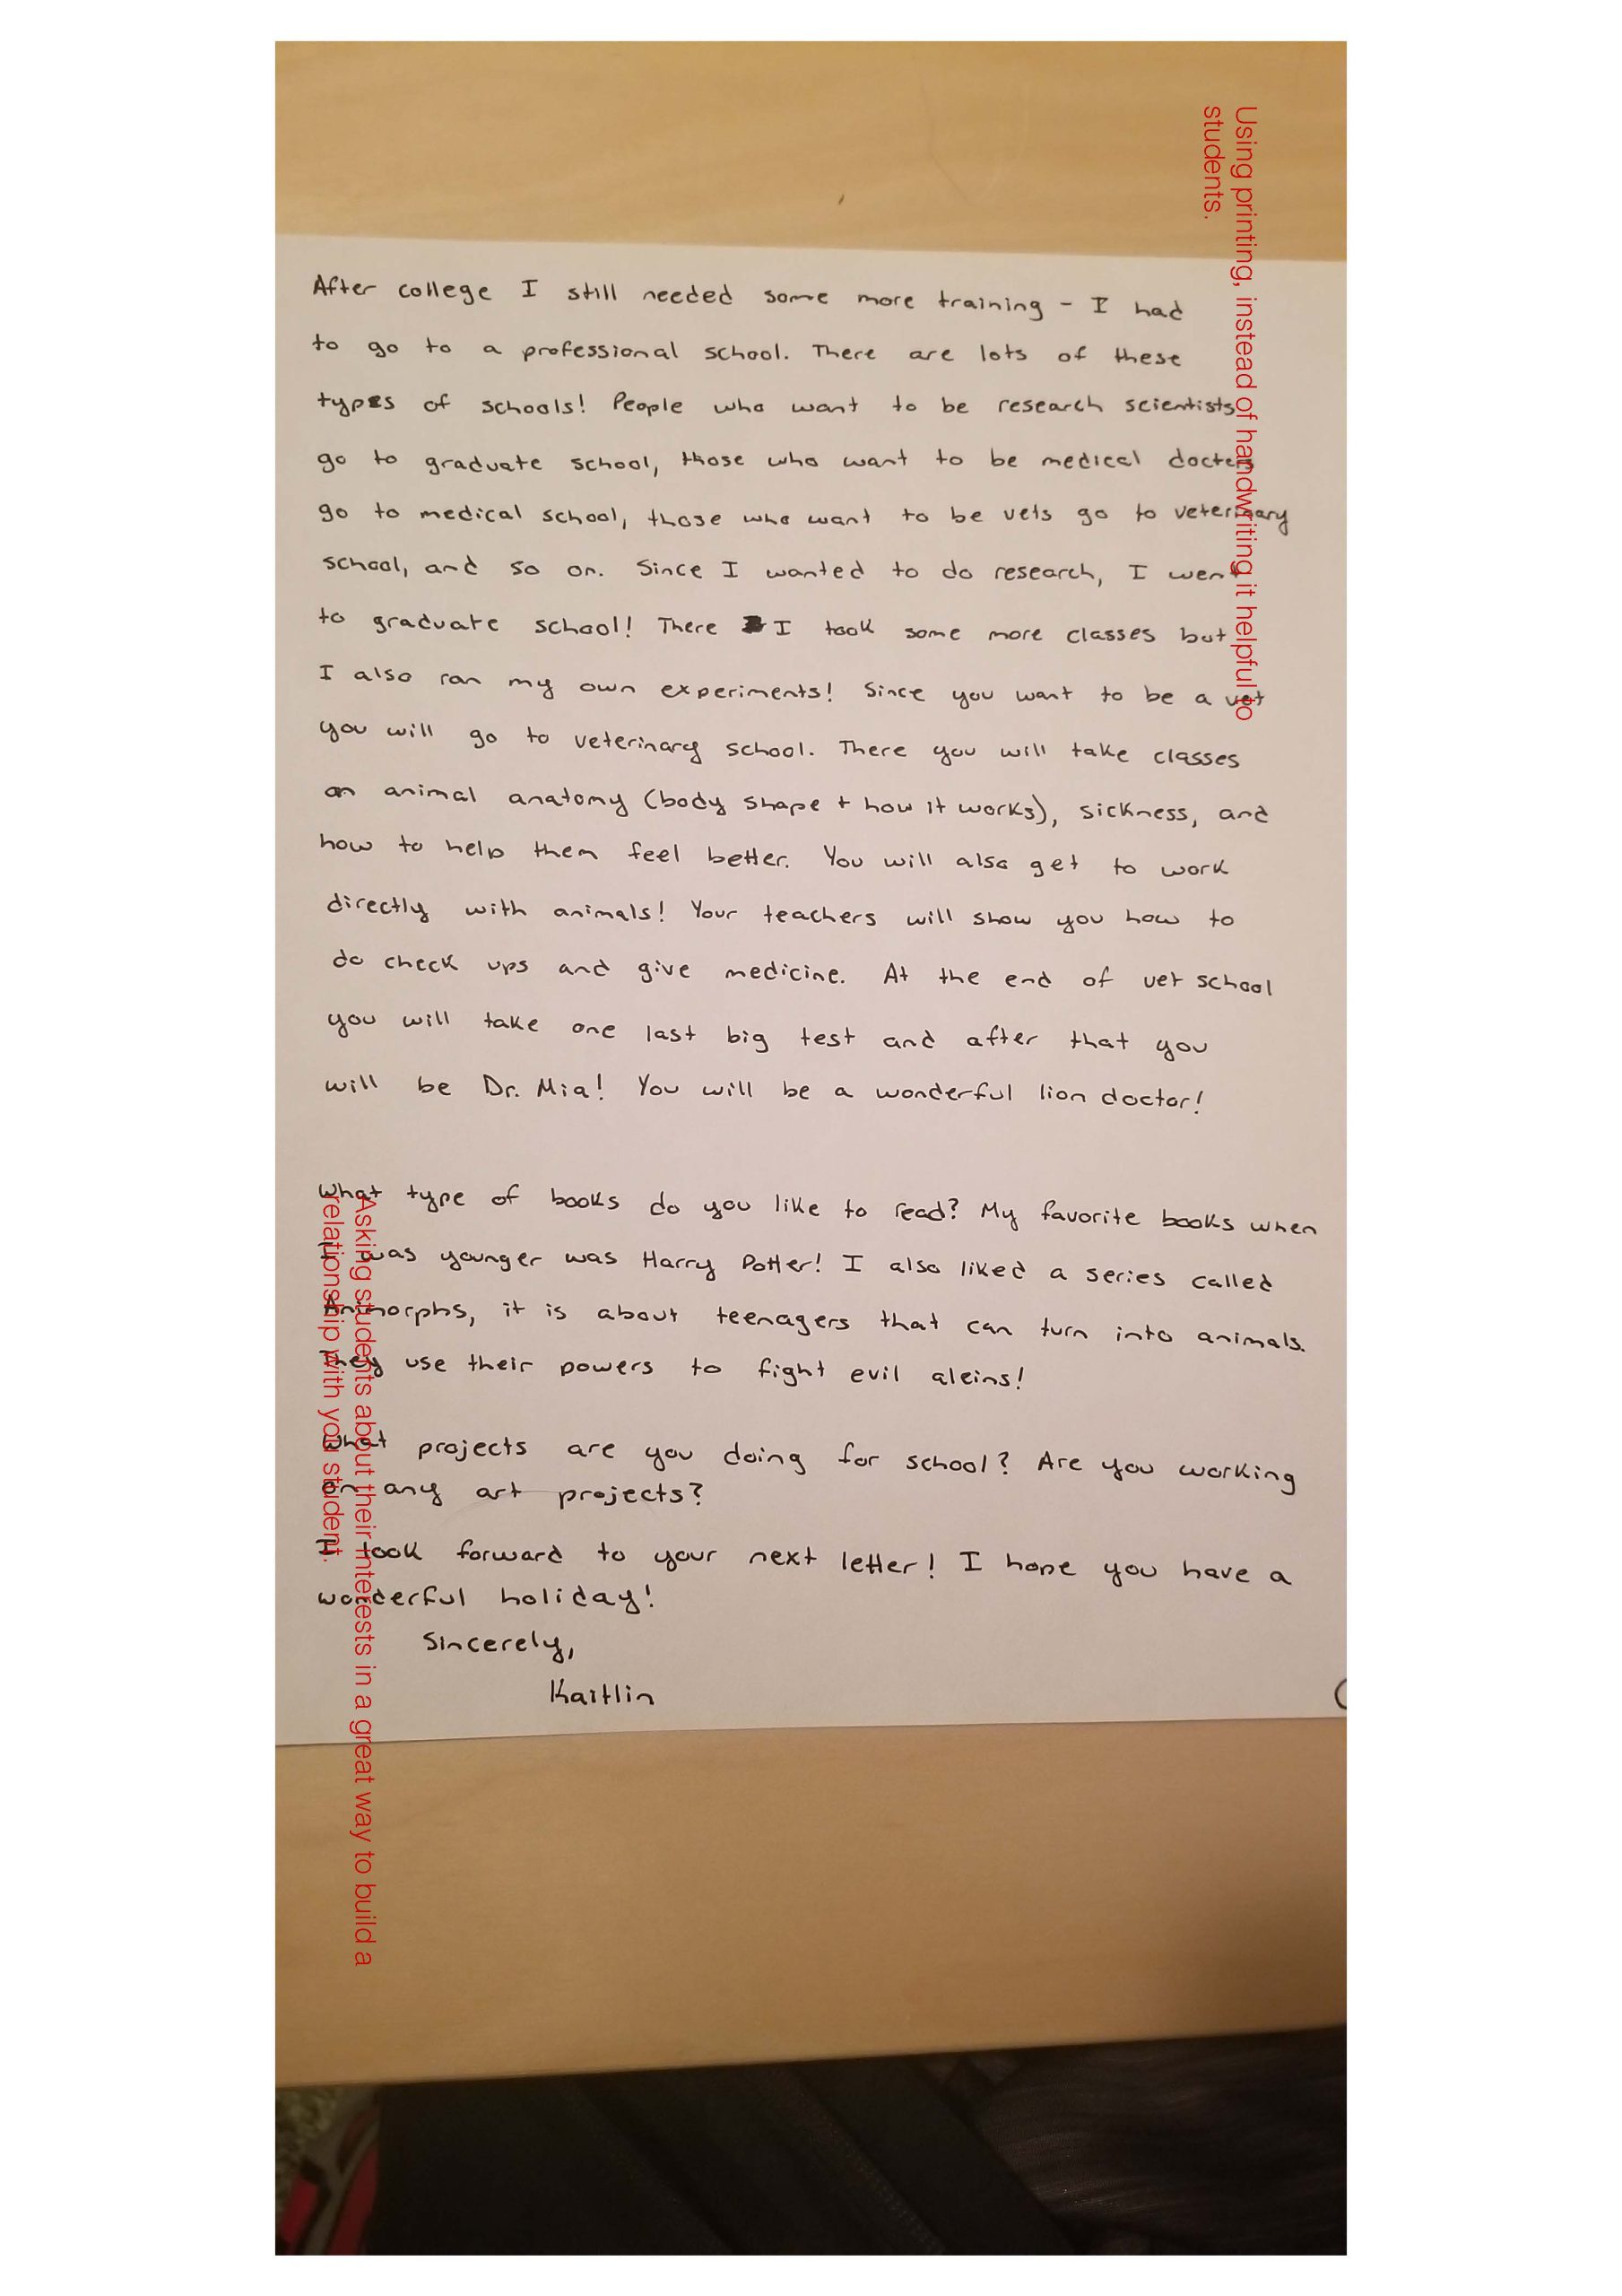 After college I still needed some more training - I had
to go to a professional school. There are lots of these
types of schools! People who want to be research scientists
go to graduate school, those who want to be medical docters
go to medical school, those who want to be vets go to veterinary
school, and so on. Since I wanted to do research, I went
to graduate school! There I took some more classes but
I also ran my own experiments! Since you want to be a vet
you will go to veterinary school. There you will take classes
on animal anatomy (body shape + how it works), sickness, and
how to help them feel better. You will also get to work
directly with animals! Your teachers will show you how to
do check ups and give medicine. At the end of vet school
you will take one last big test and after that you
will be Dr. Mia! You will be a wonderful lion doctor!
What type of books do you like to read? My favorite books when
I was younger was Harry Potter! I also liked a series called
Animorphs, it is about teenagers that can turn into animals.
They use their powers to fight evil aleins!
What projects are you doing for school? Are you working
on any art projects?
I look forward to your next letter! I hope you have a
wonderful holiday!
Sincerely,
Kaitlin
Using printing, instead of handwriting it helpful to
students.
Asking students about their interests in a great way to build a
relationship with you student.